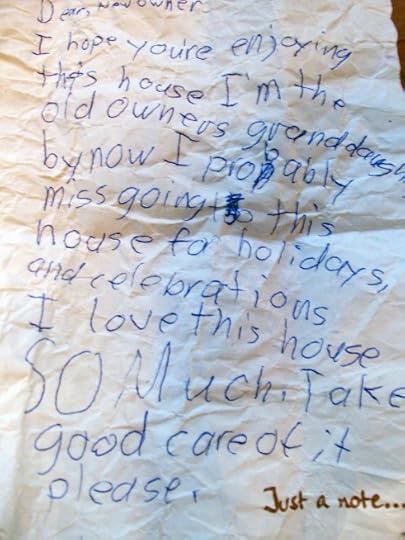 Dear, New owner.
I hope you're enjoying
this house I'm the
old owners granddaughter
by now I probably
miss going to this
house for holidays,
and celebrations
I love this house
SO Much. Take
good care of it
please.
Just a note...